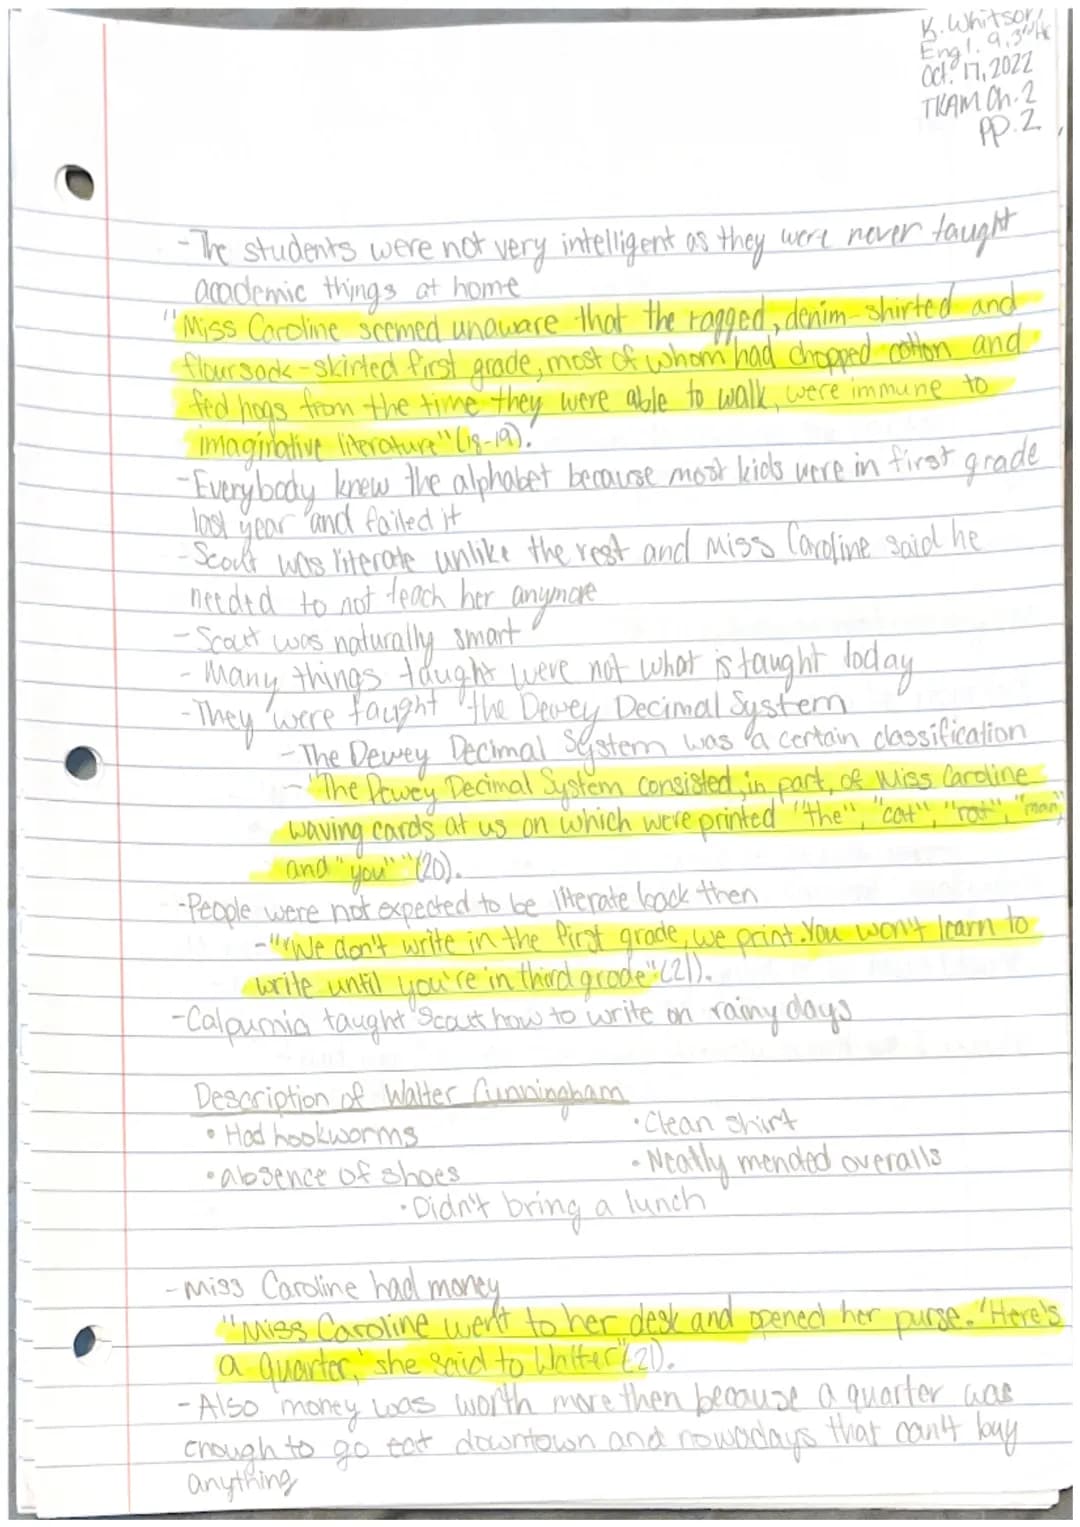 K. Whitson
Engl. 9, 3rd Hr
Oct. 17, 2022
TKAM Ch. 2
pp. 2
-The students were not very intelligent as they were never taught
academic things at home
"Miss Caroline seemed unaware that the ragged, denim-shirted and
floursack-skirted first grade, most of whom had chopped cotton and
fed hogs from the time they were able to walk, were immune to
imaginative literature" (18-19).
-Everybody knew the alphabet because most kids were in first grade
last year and failed it
-Scout was literate unlike the rest and Miss Caroline said he
needed to not teach her anymore
-Scout was naturally smart
-Many things taught were not what is taught today
-They were taught the Dewey Decimal System
-The Dewey Decimal System was a certain classification
-"The Dewey Decimal System consisted, in part, of Miss Caroline
waving cards at us on which were printed "the", "cat", "rat", "man",
and "you"" (20).
-People were not expected to be literate back then
-"'We don't write in the first grade, we print. You won't learn to
write until you're in third grade" (21).
-Calpurnia taught Scout how to write on rainy days
Description of Walter Cunningham
• Had hookworms
• Clean shirt
• absence of shoes
• Neatly mended overalls
• Didn't bring a lunch
-Miss Caroline had money
"Miss Caroline went to her desk and opened her purse. 'Here's
a quarter,' she said to Walter" (21).
-Also money was worth more then because a quarter was
enough to go eat downtown and nowadays that can't buy
anything